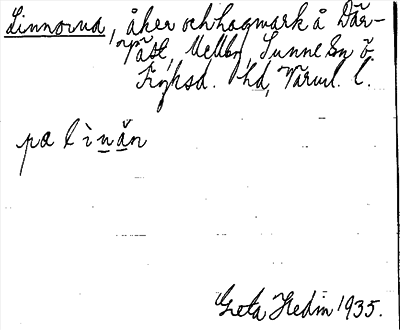 Linnorna, åker och hagmark å Där-
Mellby, Sunne Sn Ö.
Fryksd. hd, Värml. l.
pa
Greta Hedin 1935.